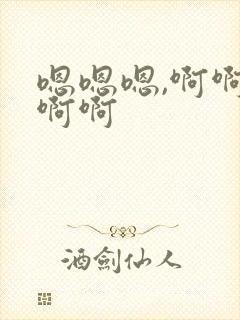 嗯嗯嗯,啊啊
啊啊
酒剑仙人